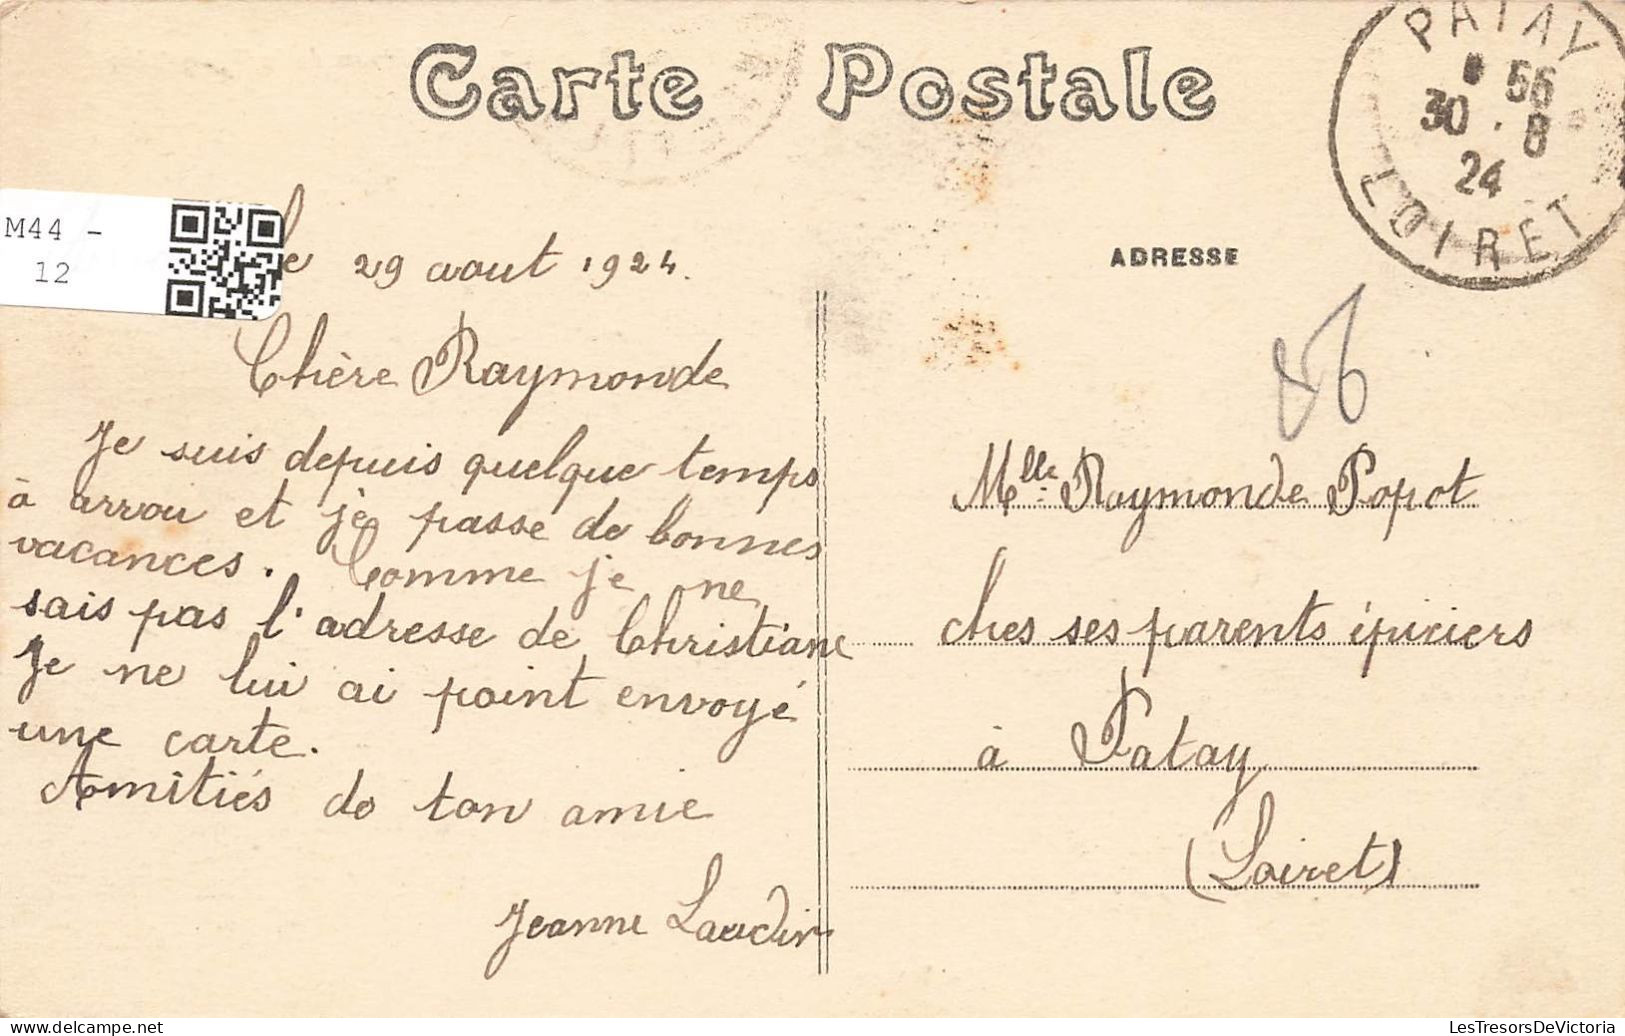 Carte Postale
PATAY
56
30 · 8
24
LOIRET
M44 -
12
le 29 aout 1924.
ADRESSE
Chère Raymonde
Je suis depuis quelque temps
à arrou et je passe de bonnes
vacances. Comme je ne
sais pas l'adresse de Christiane
Je ne lui ai point envoyé
une carte.
Amitiés de ton amie
Jeanne Laudin
86
Mlle Raymonde Popot
ches ses parents épiciers
à Patay
(Loiret)
LesTresorsDeVictoria